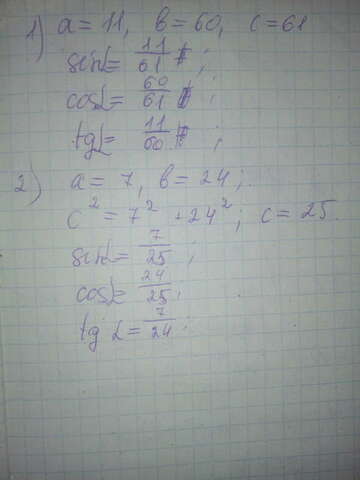 1) a = 11, b = 60, c = 61
sinα = 11/61 ;
cosα = 60/61 ;
tgα = 11/60 ;
2) a = 7, b = 24 ;
c² = 7² + 24² ; c = 25.
sinα = 7/25 ;
cosα = 24/25 ;
tg α = 7/24 ;